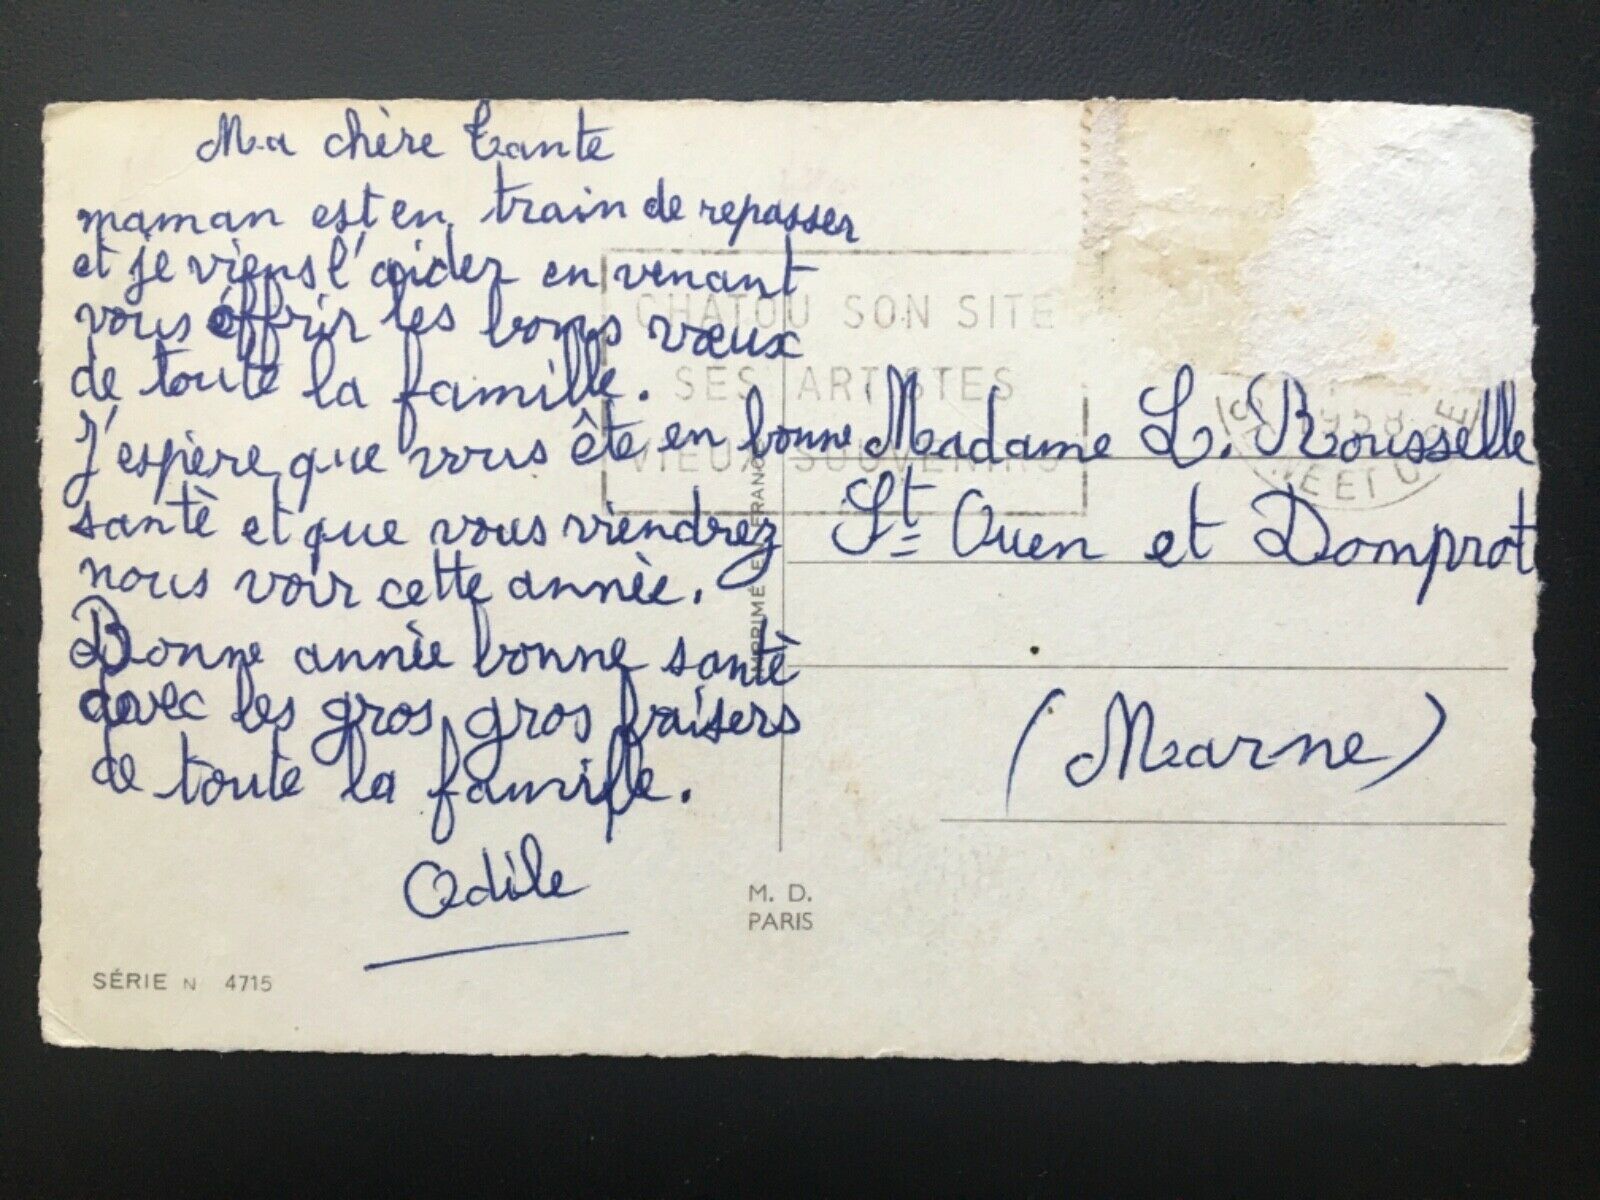 Ma chère tante
maman est en train de repasser
et je viens l'aider en venant
vous offrir les bons vœux
de toute la famille.
J'espère que vous ête en bonne
santè et que vous viendrez
nous voir cette annèe.
Bonne annèe bonne santè
avec les gros gros baisers
de toute la famille.
Odile
SÉRIE N 4715
CHATOU SON SITE
SES ARTISTES
VIEUX SOUVENIRS
IMPRIMÉ EN FRANCE
M. D.
PARIS
1958
ET OISE
Madame L. Rousselle
St Ouen et Domprot
(Marne)